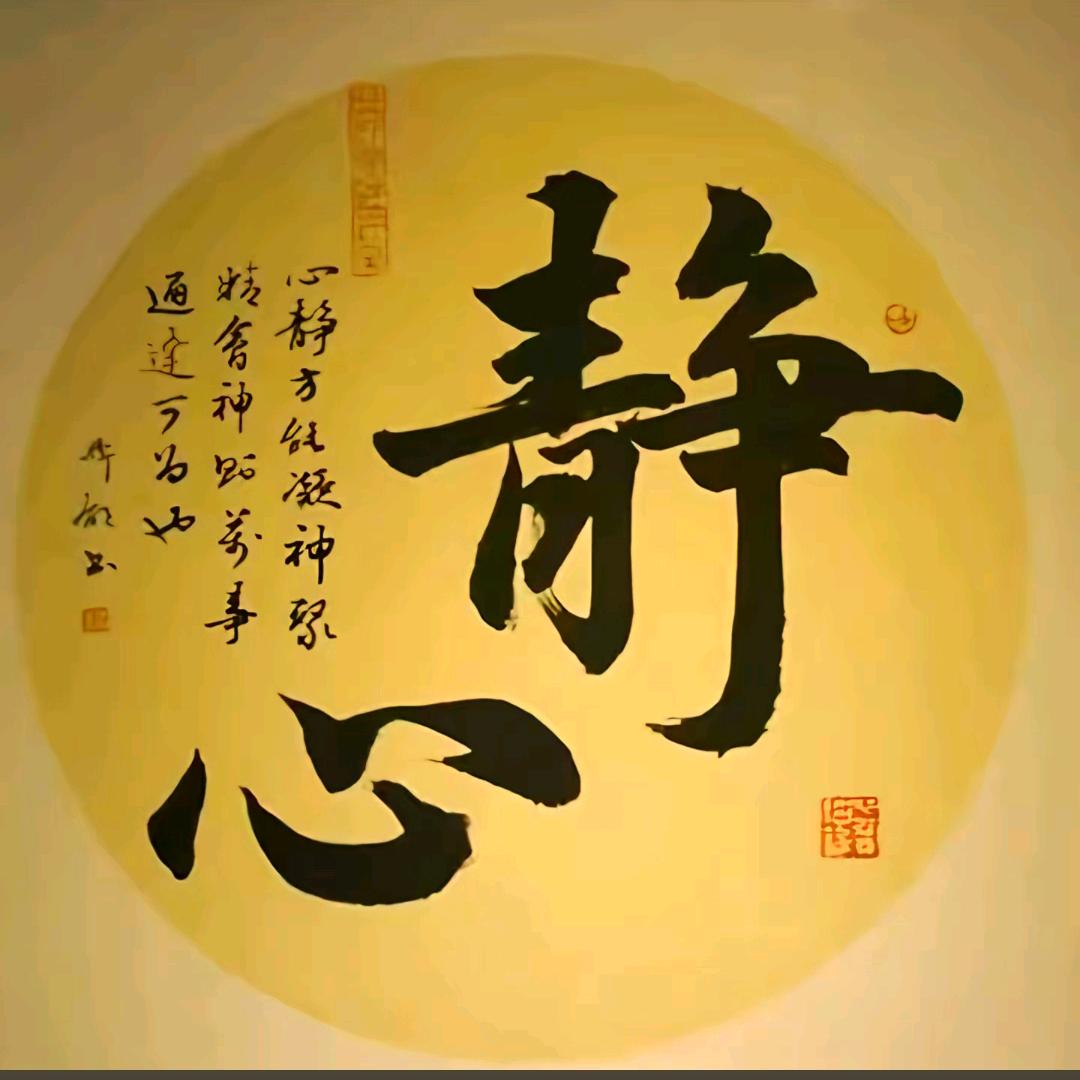 静心
心静方能凝神聚
精會神則萬事
通達可为也
书